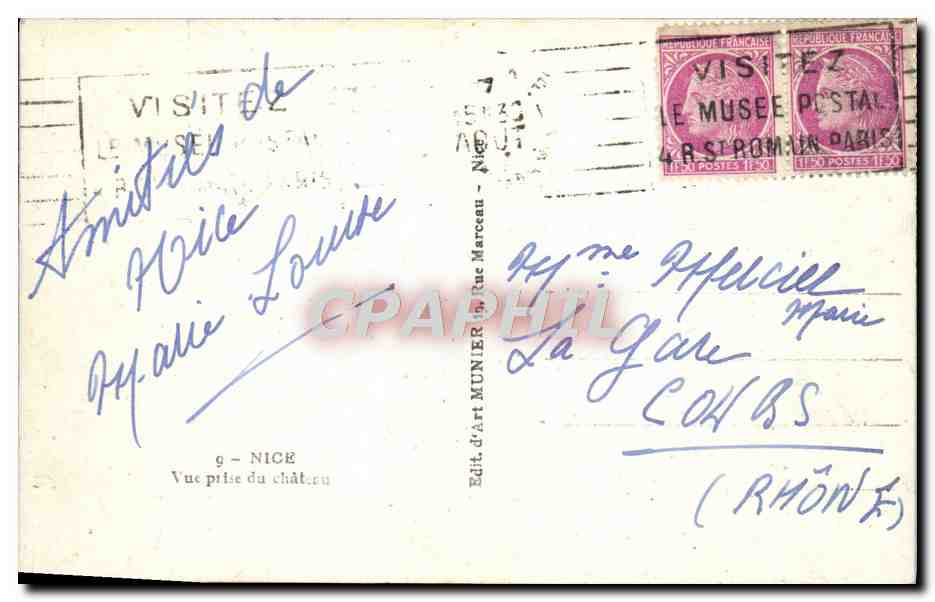 Amitiés de
Nice
Marie Louise
9 - NICE
Vue prise du château
Edit. d'Art MUNIER 19, Rue Marceau - Nice
VISITEZ
LE MUSEE POSTAL
7
AOUT
REPUBLIQUE FRANÇAISE REPUBLIQUE FRANÇAISE
VISITEZ
LE MUSEE POSTAL
4 R ST ROMAIN PARIS
1F50 POSTES 1F50 1F50 POSTES 1F50
Mme Mercier
Marie
La Gare
COURS
(RHÔNE)
CPAPHIL